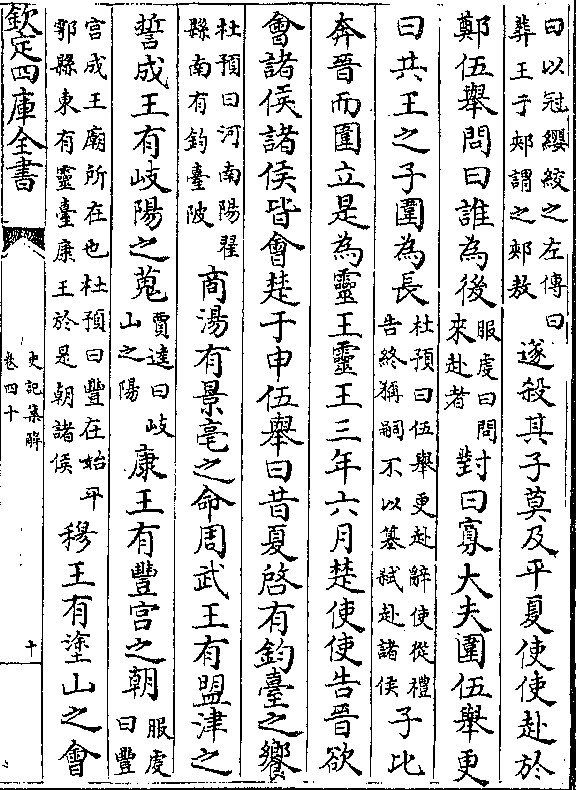 曰以冠纓絞之左傳曰
葬王于郟謂之郟敖
遂殺其子莫及平夏使使赴於
鄭伍舉問曰誰為後
服虔曰問
來赴者
對曰寡大夫圍伍舉更
曰共王之子圍為長
杜預曰伍舉更赴辭使從禮
告終稱嗣不以簒弑赴諸侯
子比
奔晉而圍立是為靈王靈王三年六月楚使使告晉欲
會諸侯諸侯皆會楚于申伍舉曰昔夏啓有鈞臺之饗
杜預曰河南陽翟
縣南有鈞臺陂
商湯有景亳之命周武王有盟津之
誓成王有岐陽之蒐
賈逵曰岐
山之陽
康王有豐宫之朝
服虔
曰豐
宫成王廟所在也杜預曰豐在始平
鄠縣東有靈臺康王於是朝諸侯
穆王有塗山之會
欽定四庫全書
史記集解
卷四十
十